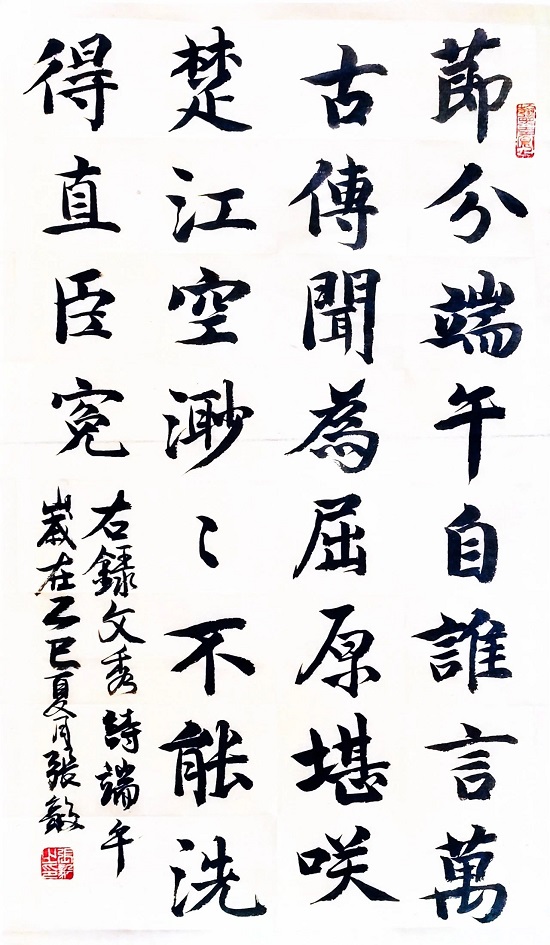 節分端午自誰言萬
古傳聞為屈原堪咲
楚江空渺〻不能洗
得直臣寃
右録文秀詩端午
歲在乙巳夏月張敏